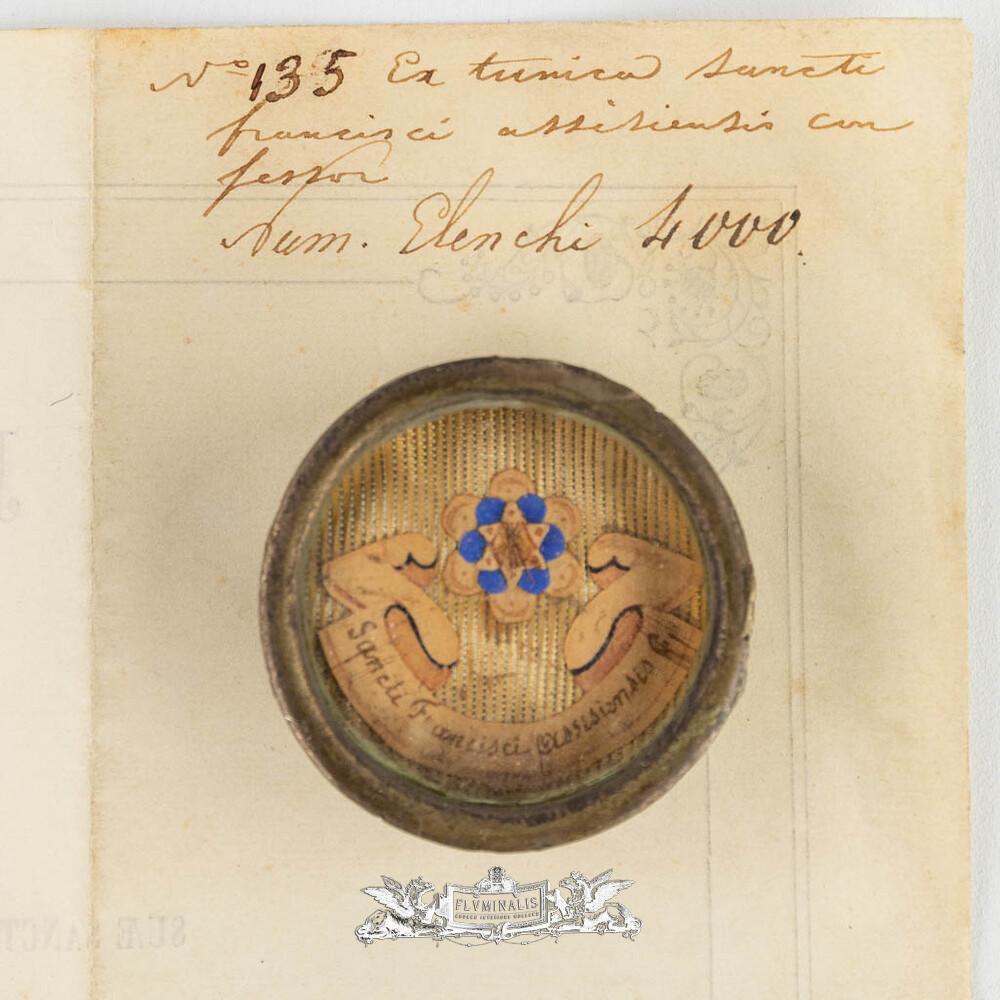 Nº 135 Ex tunica Sancti
francisci assisiensis con
fessor
Num. Elenchi 4000.
Sancti Francisci Assisiensis F
FLVMINALIS
SUÆ SANCT